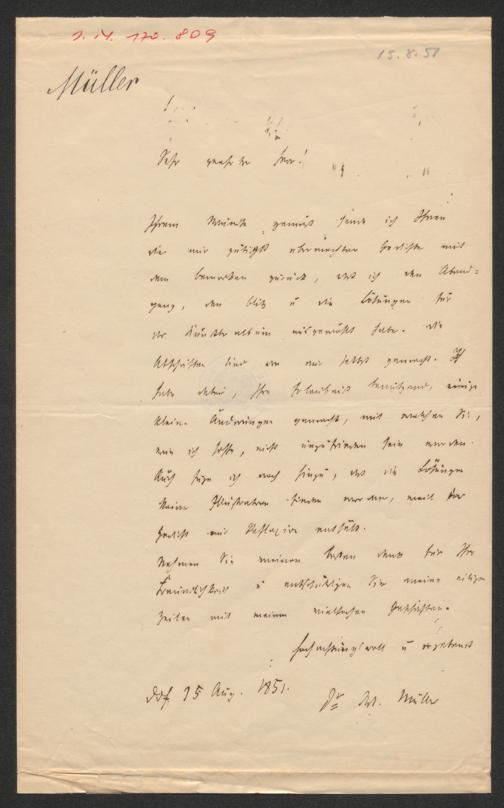 J. N. 170.809
15.8.51
Müller
Sehr geehrter Herr!
Ihrem Wunsche gemäß sende ich Ihnen
die mir gütigst übermachten Gedichte mit
dem Bemerken zurück, daß ich den Abend-
gang, den Blitz u die Lösungen für
das Künstleralbum ausgewählt habe. Die
Abschriften sind von mir selbst gemacht. Ich
habe dabei, Ihre Erlaubniß benützend, einige
kleine Änderungen gemacht, mit welchen Sie,
wie ich hoffe, nicht unzufrieden sein werden.
Auch füge ich noch hinzu, daß die Lösungen
keine Illustration finden werden, weil das
Gedicht nur Reflexion enthält.
Nehmen Sie meinen besten Dank für Ihre
Freundlichkeit u entschuldigen Sie meine eiligen
Zeilen mit meinen vielfachen Geschäften.
Hochachtungsvoll u ergebenst
Ddf. 15 Aug. 1851.
Dr Müller